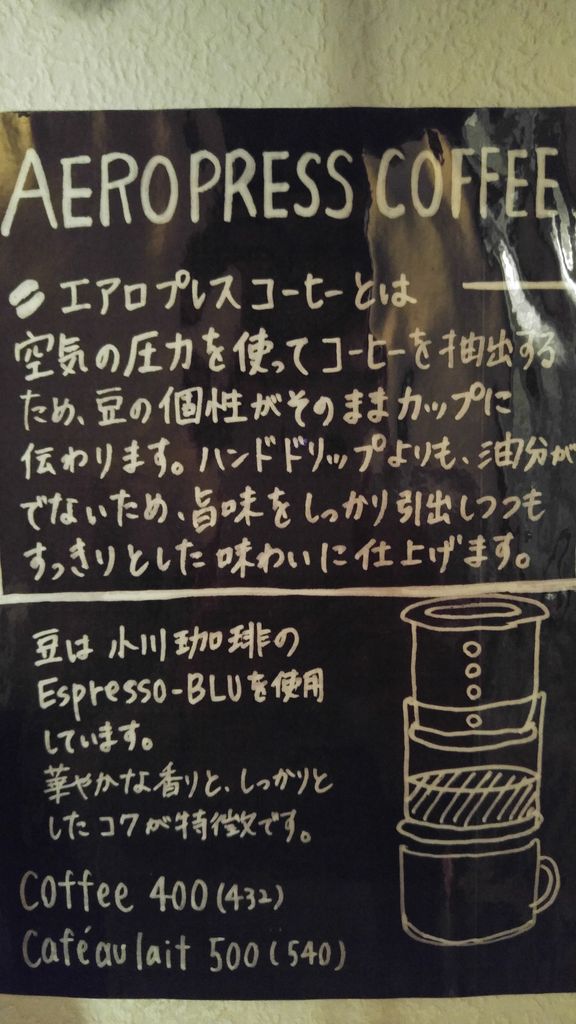 AEROPRESS COFFEE
エアロプレスコーヒーとは
空気の圧力を使ってコーヒーを抽出する
ため、豆の個性がそのままカップに
伝わります。ハンドドリップよりも、油分が
でないため、旨味をしっかり引出しつつも
すっきりとした味わいに仕上げます。
豆は小川珈琲の
Espresso-BLUを使用
しています。
華やかな香りと、しっかりと
したコクが特徴です。
Coffee 400(432)
Café au lait 500(540)